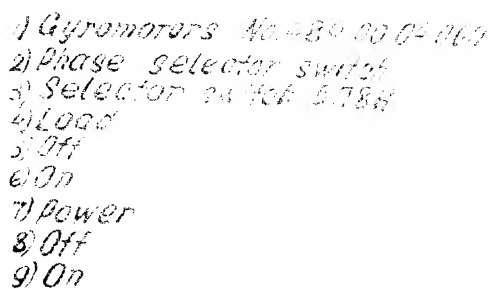 1) Gyromotors No.
2) Phase selector switch
3) Selector switch
4) Load
5) Off
6) On
7) Power
8) Off
9) On